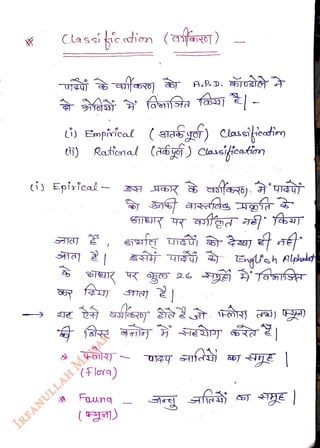 * Classification (वर्गीकरण) -
पादपों के वर्गीकरण को A.P.D. कॉण्डोले ने
दो श्रेणियों में विभाजित किया है। -
(i) Empirical (आतर्कपूर्ण) Classification
(ii) Rational (तर्कपूर्ण) Classification
(i) Epirical - इस प्रकार के वर्गीकरण में पादपों
को उनकी वास्तविक प्रकृति के
आधार पर वर्गीकृत नहीं किया
जाता है, अर्थात पादपों को देखा ही नहीं
जाता है। इसमें पादपों को English Alphabet
के आधार पर कुल 26 समूहों में विभाजित
कर दिया जाता है।
→ यह ऐसे वर्गीकरण होते है जो फ्लोरा तथा फ्यूना
की लिस्ट बनाने में सहयोग करते है।
* फ्लोरा - पादप जातियों का समूह।
(Flora)
* Fauna - जन्तु जातियों का समूह।
(फ्यूना)
IRFANULLAH